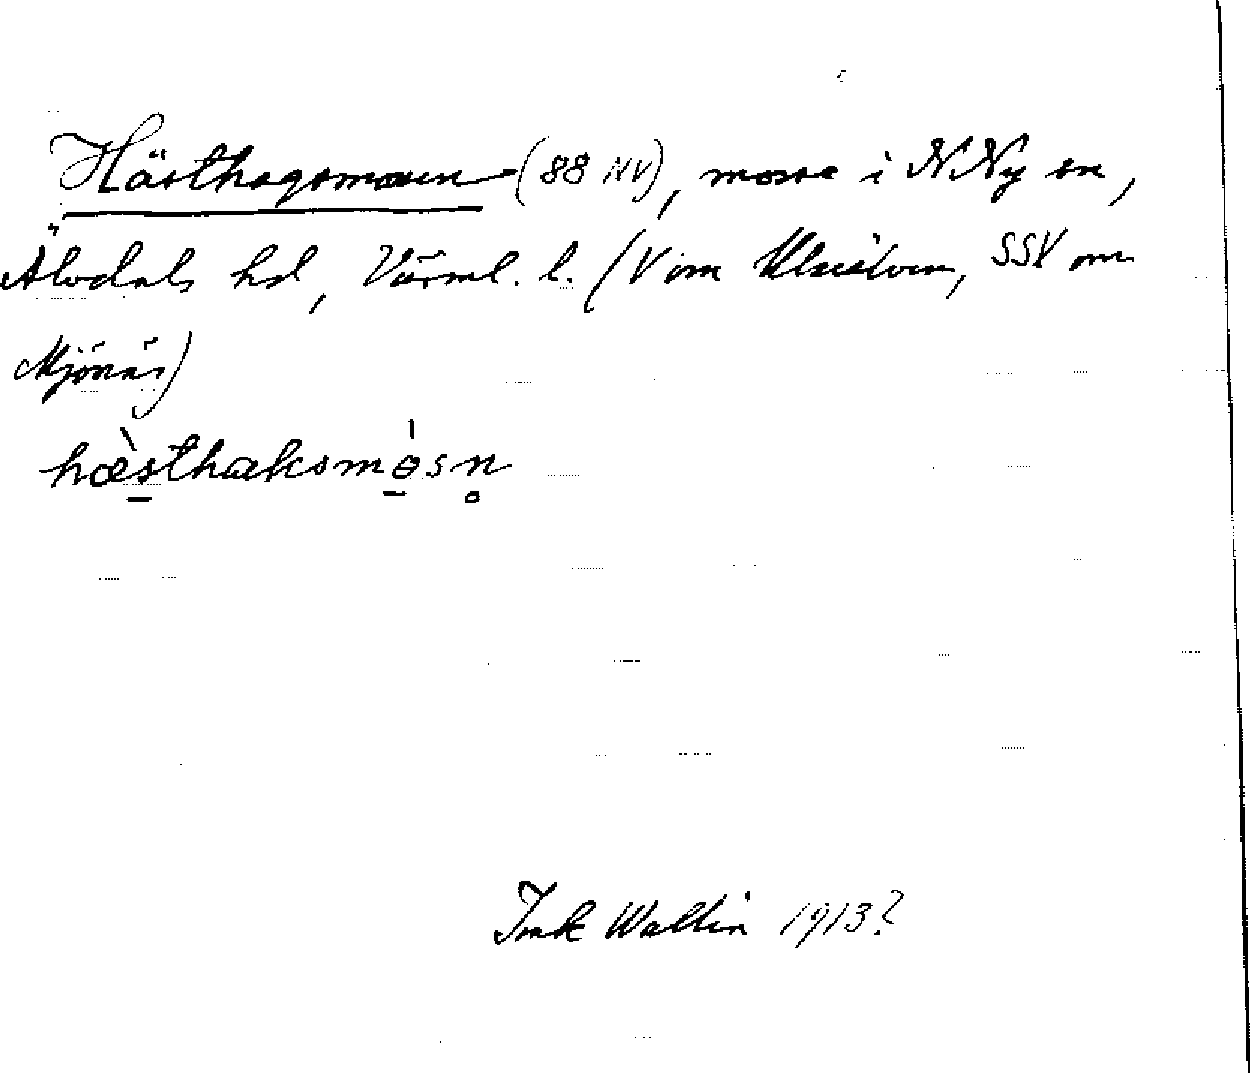 Hästhagsmossen (88 NV), mosse i N Ny sn,
Älvdals hd, Värml. l. (V om Klarälven, SSV om
Mjönäs)
hæ̀sthaksmòsn̥
Wallin 1913?